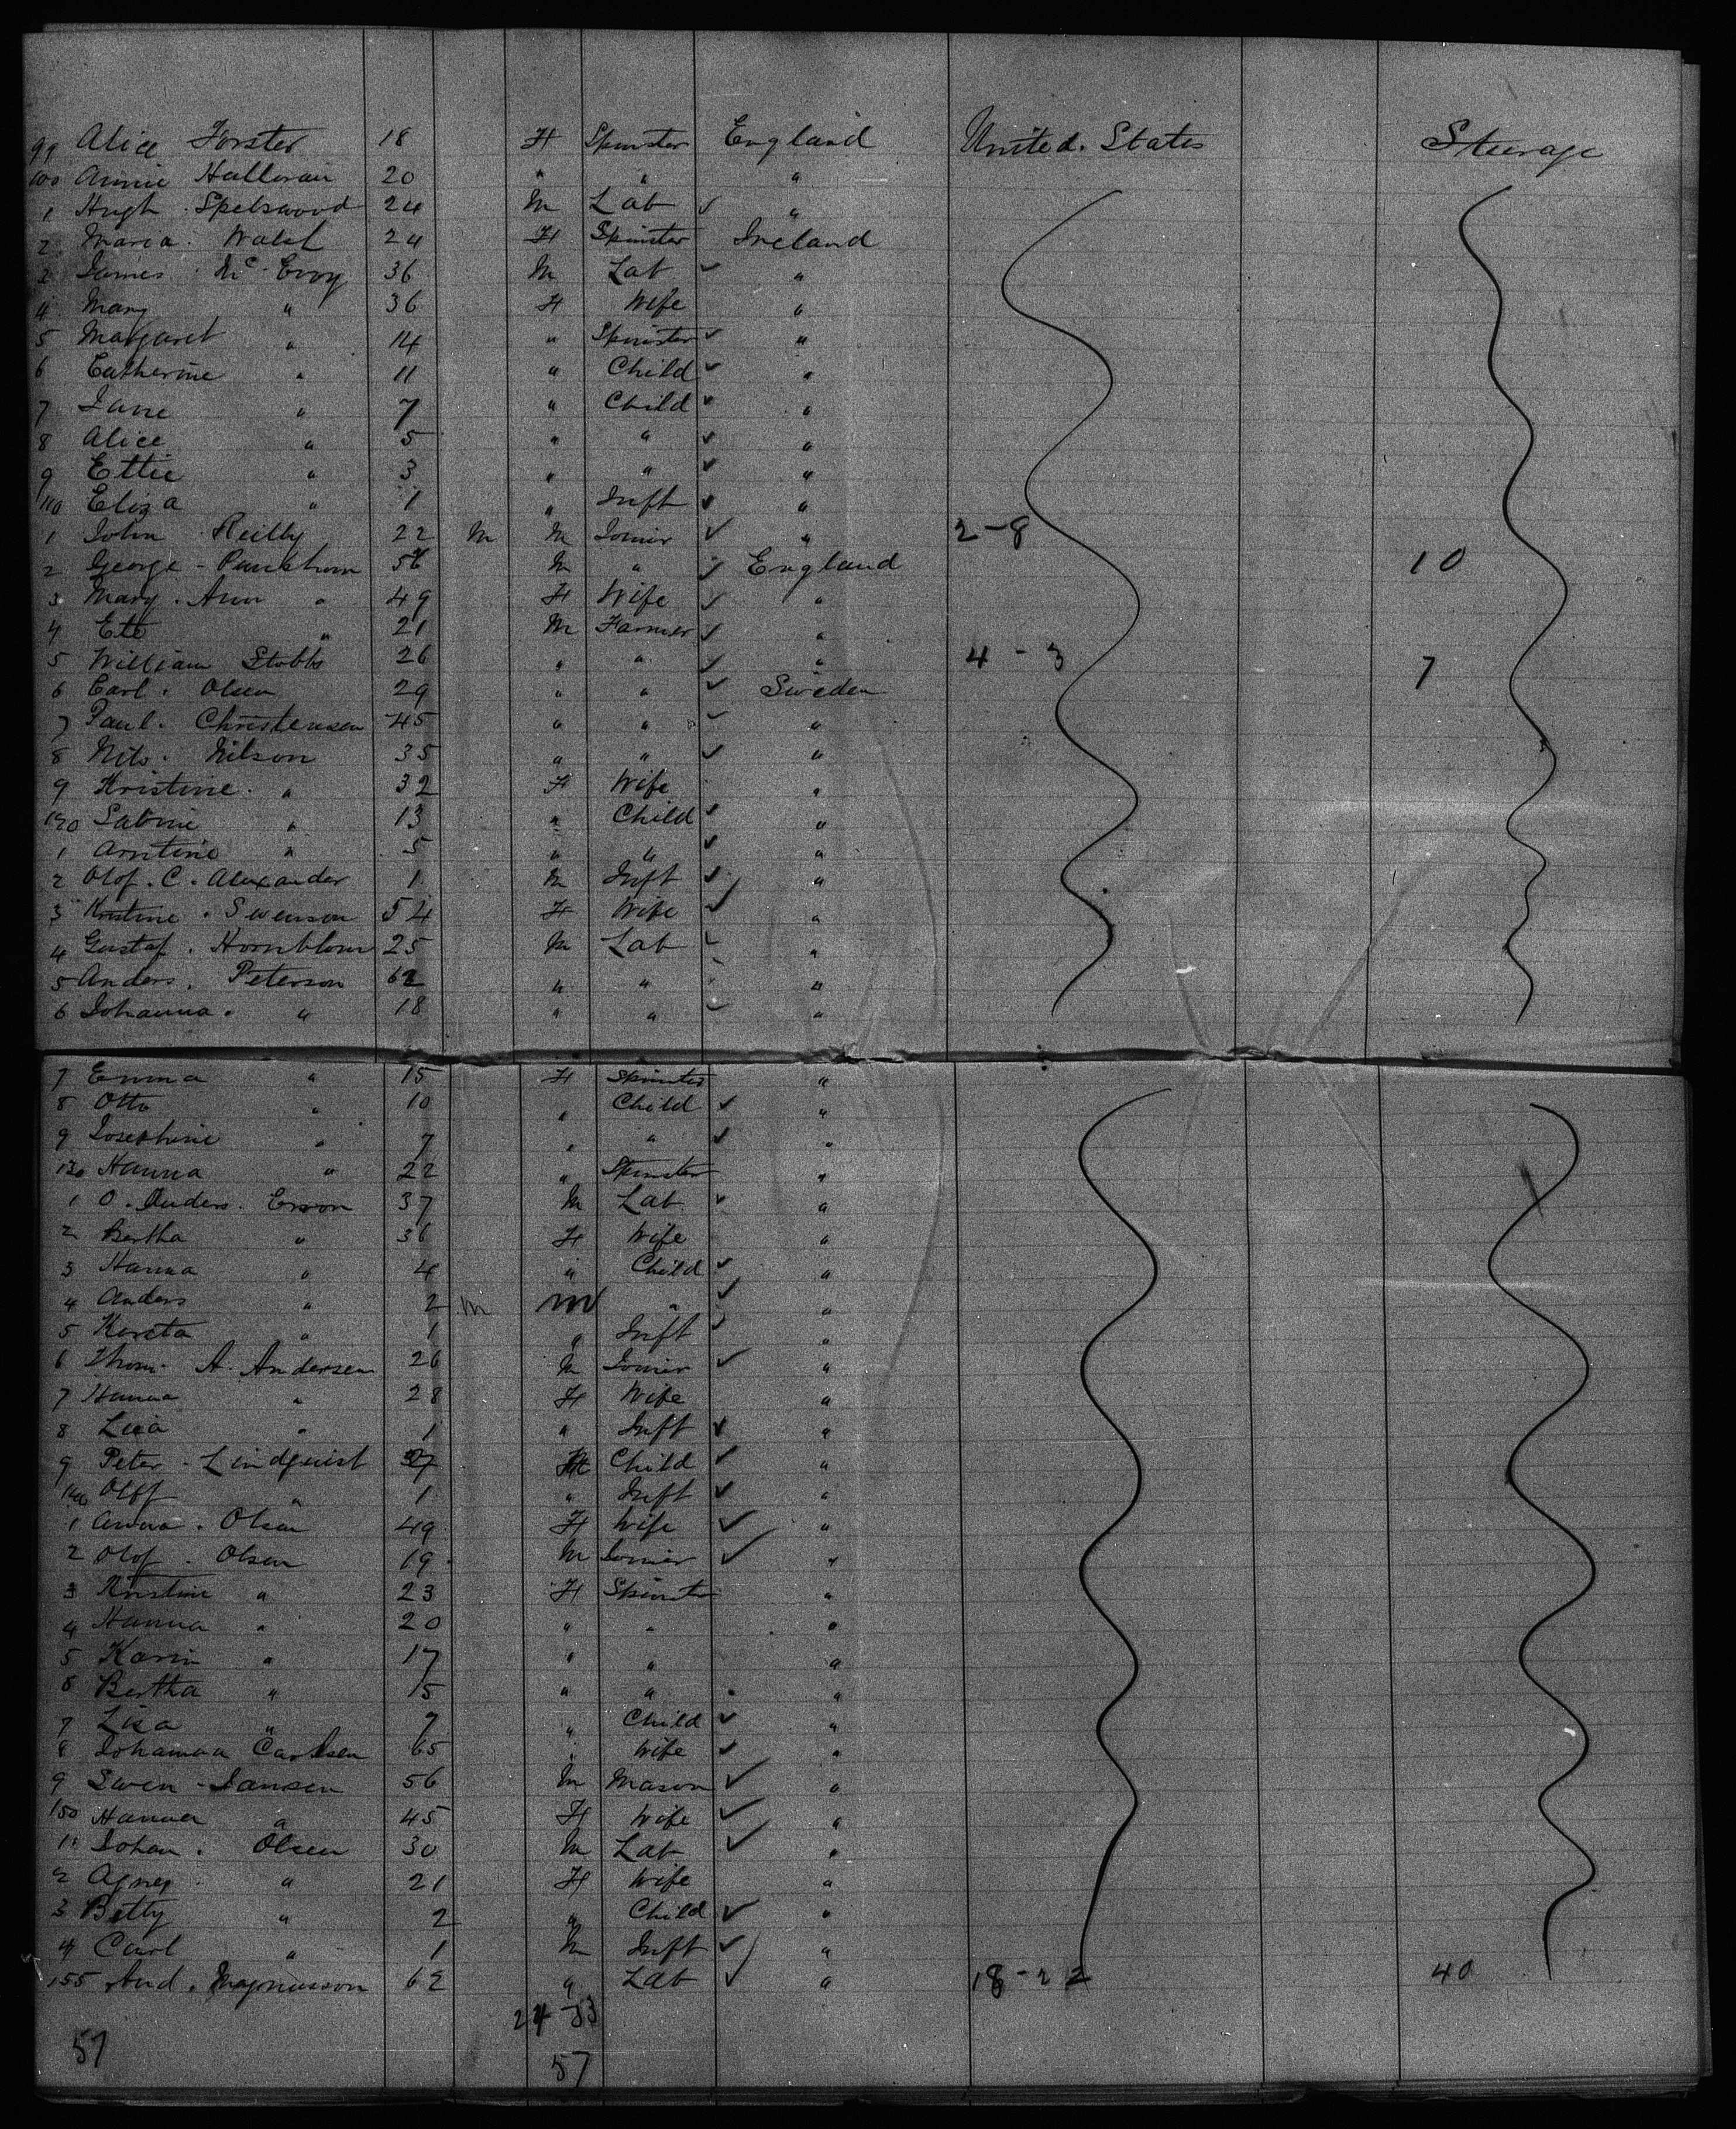 99 Alice Forster 18 F Spinster England United. States Steerage
100 Annie Halloran 20 " " "
1 Hugh Spelswood 24 M Lab ✓ "
2 Maria Walsh 24 F Spinster Ireland
3 James McEvoy 36 M Lab ✓ "
4 Mary " 36 F Wife "
5 Margaret " 14 " Spinster ✓ "
6 Catherine " 11 " Child ✓ "
7 Jane " 7 " Child ✓ "
8 Alice " 5 " " ✓ "
9 Ettie " 3 " " ✓ "
110 Eliza " 1 " Inft ✓ "
1 John Reilly 22 M M Joiner ✓ " 2-8
2 George - Pankhurn M " ✓ England 10
3 Mary. Ann " 49 F Wife ✓ "
4 " 21 M Farmer ✓ "
5 William Stobbs 26 " " ✓ " 4-3 7
6 Carl. Olsen 29 " " ✓ Sweden
7 Paul. Christensen 45 " " ✓ "
8 Nils. Nilson 35 " " ✓ "
9 Kristine. " 32 F Wife "
120 Sabine " 13 " Child ✓ "
1 " 5 " " ✓ "
2 Olof. C. Alexander 1 M Inft ✓ "
3 Kristine. Swenson 54 F Wife ✓ "
4 Gustaf. Hornblom 25 M Lab ✓ "
5 Anders. Peterson 62 " " "
6 Johanna. " 18 " " ✓ "
7 Emma " 15 F Spinster "
8 Otto " 10 " Child ✓ "
9 Josephine " 7 " " ✓ "
130 Hanna " 22 " Spinster "
1 O. Anders. Erson 37 M Lab ✓ "
2 Bertha " 36 F Wife "
3 Hanna " 4 " Child ✓ "
4 Anders " 2 M M " ✓ "
5 Kersta " 1 " Inft ✓ "
6 Thom. A. Andersen 26 M Joiner ✓ "
7 Hanna " 28 F Wife "
8 Lisa " 1 " Inft ✓ "
9 Peter - Lindquist Child ✓ "
140 Olff " 1 " Inft ✓ "
1 Anna. Olsen 49 F Wife ✓ "
2 Olof. Olsen 19 M Joiner ✓ "
3 Kristine " 23 F Spinster "
4 Hanna " 20 " " "
5 Karin " 17 " " "
6 Bertha " 15 " " "
7 Lisa " 7 " Child ✓ "
8 Johanna Carlsen 65 " Wife ✓ "
9 Swen - Jansen 56 M Mason ✓ "
150 Hanna " 45 F Wife ✓ "
1 Johan. Olsen 30 M Lab ✓ "
2 Agnes " 21 F Wife "
3 Betty " 2 " Child ✓ "
4 Carl " 1 M Inft ✓ "
155 And. Magnusson 62 " Lab ✓ " 18-22 40
24-33
57 57